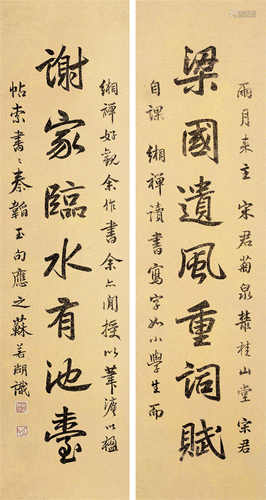 兩月來主 宋君菊泉叢桂山堂 宗君
梁國遺風重詞賦
自課 緗禪讀書寫字如小學生而
緗禪好觀余作書余亦間授以筆灋以楹
謝家臨水有池臺
帖索書〻秦韜玉句應之 蘇若湖識